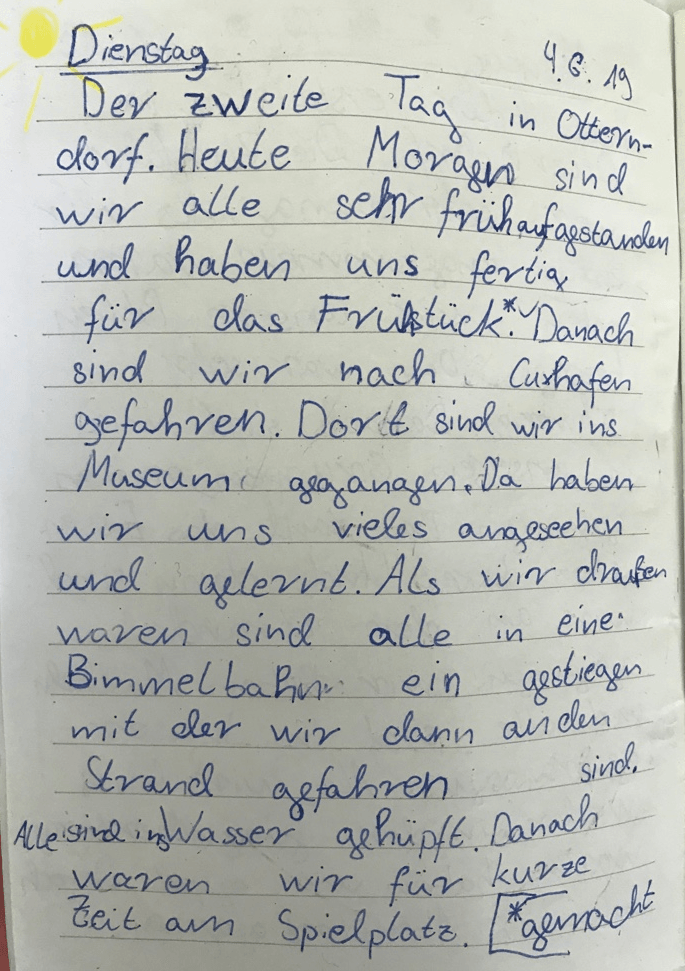 Dienstag 4.6.19
Der zweite Tag in Ottern-
dorf. Heute Morgen sind
wir alle sehr früh aufgestanden
und haben uns fertig
für das Frühstück.* Danach
sind wir nach Cuxhafen
gefahren. Dort sind wir ins
Museum gegangen. Da haben
wir uns vieles angeseehen
und gelernt. Als wir draußen
waren sind alle in eine
Bimmelbahn ein gestiegen
mit der wir dann an den
Strand gefahren sind.
Alle sind ins Wasser gehüpft. Danach
waren wir für kurze
Zeit am Spielplatz. *gemacht